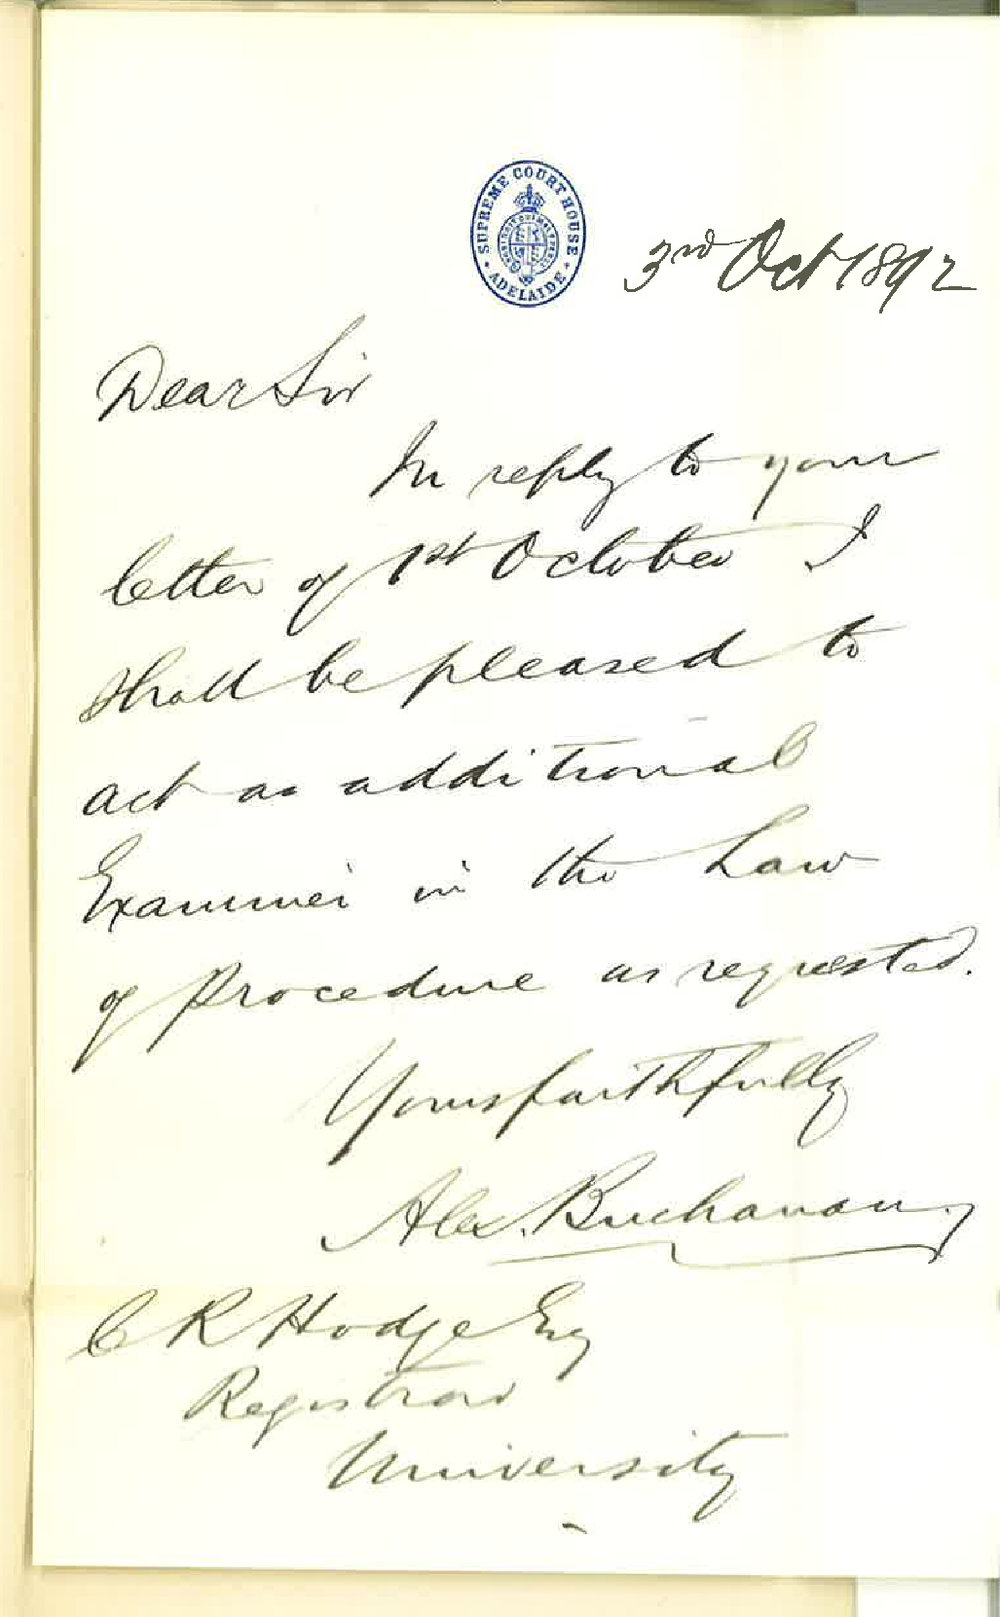 SUPREME COURT HOUSE
ADELAIDE
3rd Oct 1892
Dear Sir
In reply to your
letter of 1st October I
shall be pleased to
act as additional
Examiner in the Law
of Procedure as requested.
Yours faithfully
Alex. Buchanan
C R Hodge Esq
Registrar
University